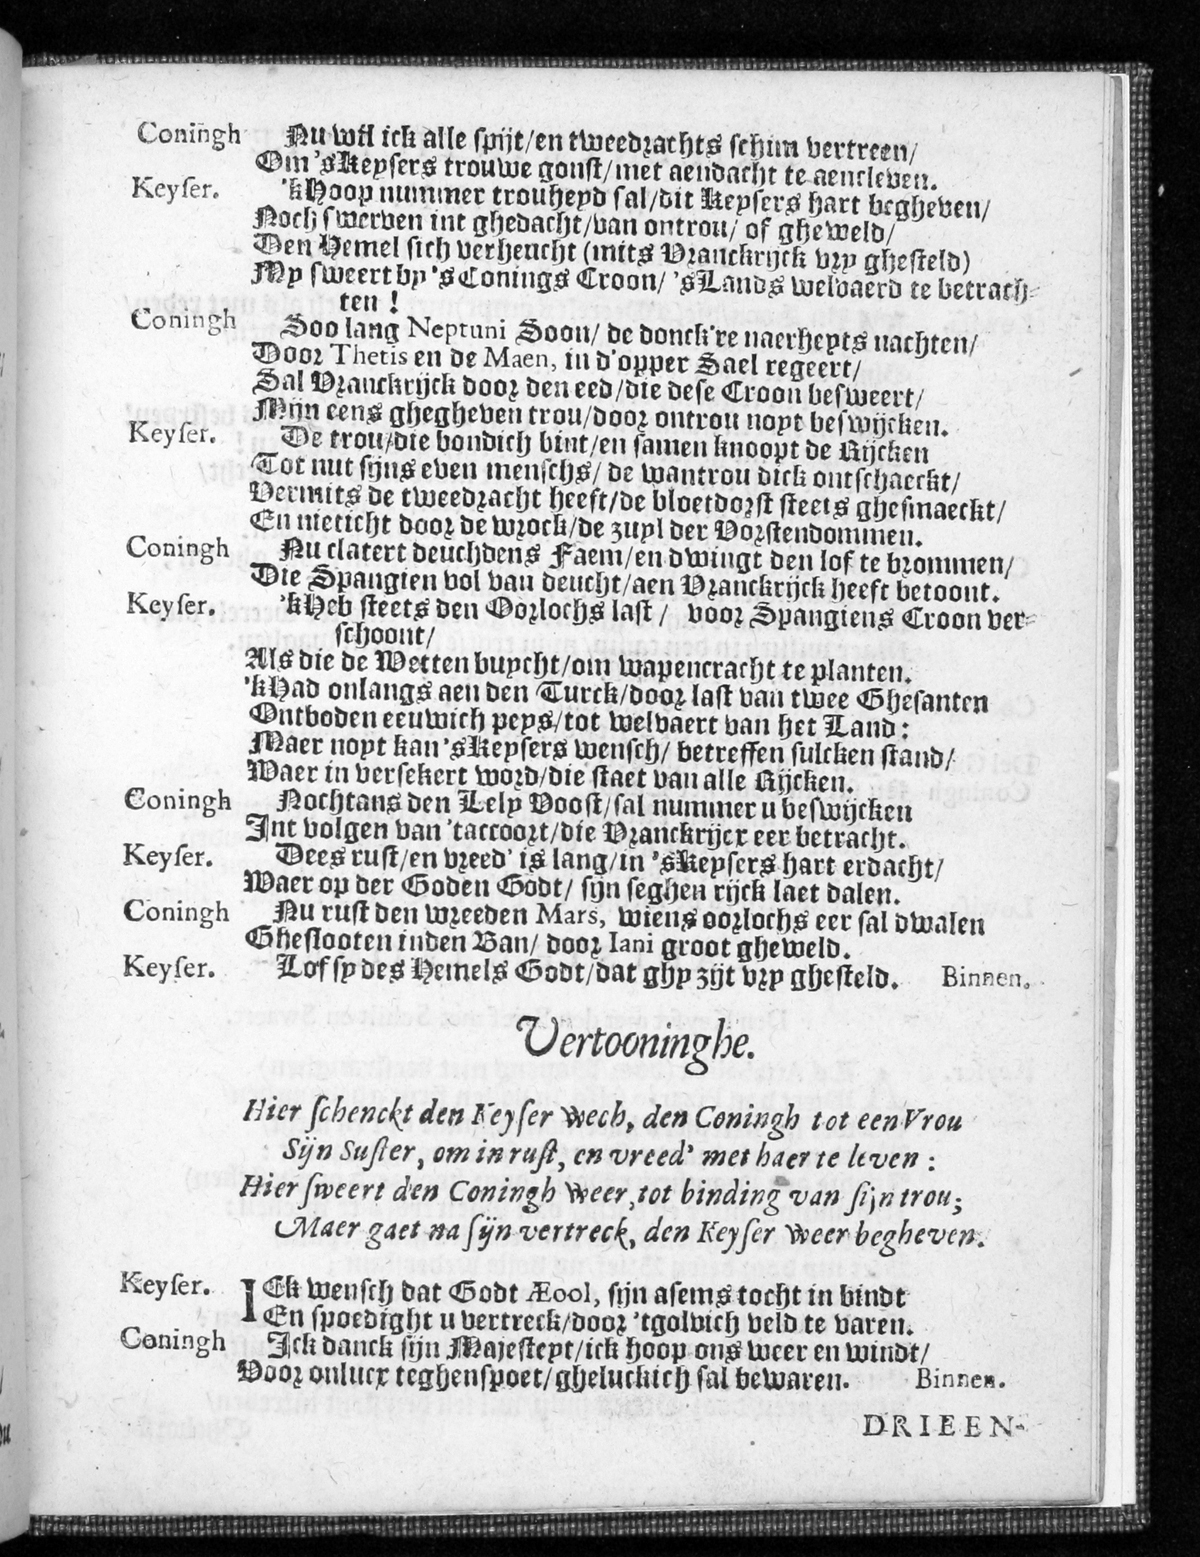 Coningh Nu wil ick alle spijt/en tweedrachts schim vertreen/
Om 'sKeysers trouwe gonst/met aendacht te aencleven.
Keyser. 'kHoop nummer trouheyd sal/dit Keysers hart begheven/
Noch swerven int ghedacht/van ontrou/ of gheweld/
Den Hemel sich verheucht (mits Vranckrijck vry ghesteld)
My sweert by 'sConings Croon/ 'sLands welvaerd te betrach-
ten !
Coningh Soo lang Neptuni Soon/ de donck're naerheyts nachten/
Door Thetis en de Maen, in d'opper Sael regeert/
Sal Vranckrijck door den eed/die dese Croon besweert/
Mijn eens ghegheven trou/door ontrou noyt beswijcken.
Keyser. De trou/die bondich bint/en samen knoopt de Rijcken
Tot nut sijns even menschs/ de wantrou dick ontschaeckt/
Vermits de tweedracht heeft/de bloetdorst steets ghesmaeckt/
En nieticht door de wrock/de zuyl der Vorstendommen.
Coningh Nu clatert deuchdens Faem/en dwingt den lof te brommen/
Die Spangien vol van deucht/aen Vranckrijck heeft betoont.
Keyser. 'kHeb steets den Oorlochs last / voor Spangiens Croon ver-
schoont/
Als die de Wetten buycht/om wapencracht te planten.
'kHad onlangs aen den Turck/door last van twee Ghesanten
Ontboden eeuwich peys/tot welvaert van het Land:
Maer noyt kan 'sKeysers wensch/ betreffen sulcken stand/
Waer in versekert word/die staet van alle Rijcken.
Coningh Nochtans den Lely Voost/sal nummer u beswijcken
Int volgen van 'taccoort/die Vranckrijcx eer betracht.
Keyser. Dees rust/en vreed' is lang/in 'sKeysers hart erdacht/
Waer op der Goden Godt/ sijn seghen rijck laet dalen.
Coningh Nu rust den wreeden Mars, wiens oorlochs eer sal dwalen
Ghesslooten inden Ban/ door Iani groot gheweld.
Keyser. Lof sy des Hemels Godt/dat ghy zijt vry ghesteld. Binnen.
Vertooninghe.
Hier schenckt den Keyser wech, den Coningh tot een Vrou
Sijn Suster, om in rust, en vreed' met haer te leven :
Hier sweert den Coningh weer, tot binding van sijn trou;
Maer gaet na sijn vertreck, den Keyser weer begheven.
Keyser. IEk wensch dat Godt Æool, sijn asems tocht in bindt
En spoedight u vertreck/door 'tgolvich veld te varen.
Coningh Ick danck sijn Majesteyt/ick hoop ons weer en windt/
Voor onlucx teghenspoet/gheluckich sal bewaren. Binnen.
DRIEEN-